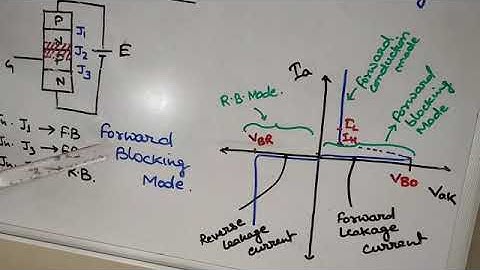 P
N
P
N
J1
J2
J3
E
G
Jn. J1 → FB
Jn. J3 → FB
R.B.
Forward
Blocking
Mode.
Ia
R.B. Mode.
VBR
IL
IH
forward
conduction
mode
forward
blocking
Mode
VBO
VAK
Reverse
leakage
current
Forward
Leakage
current